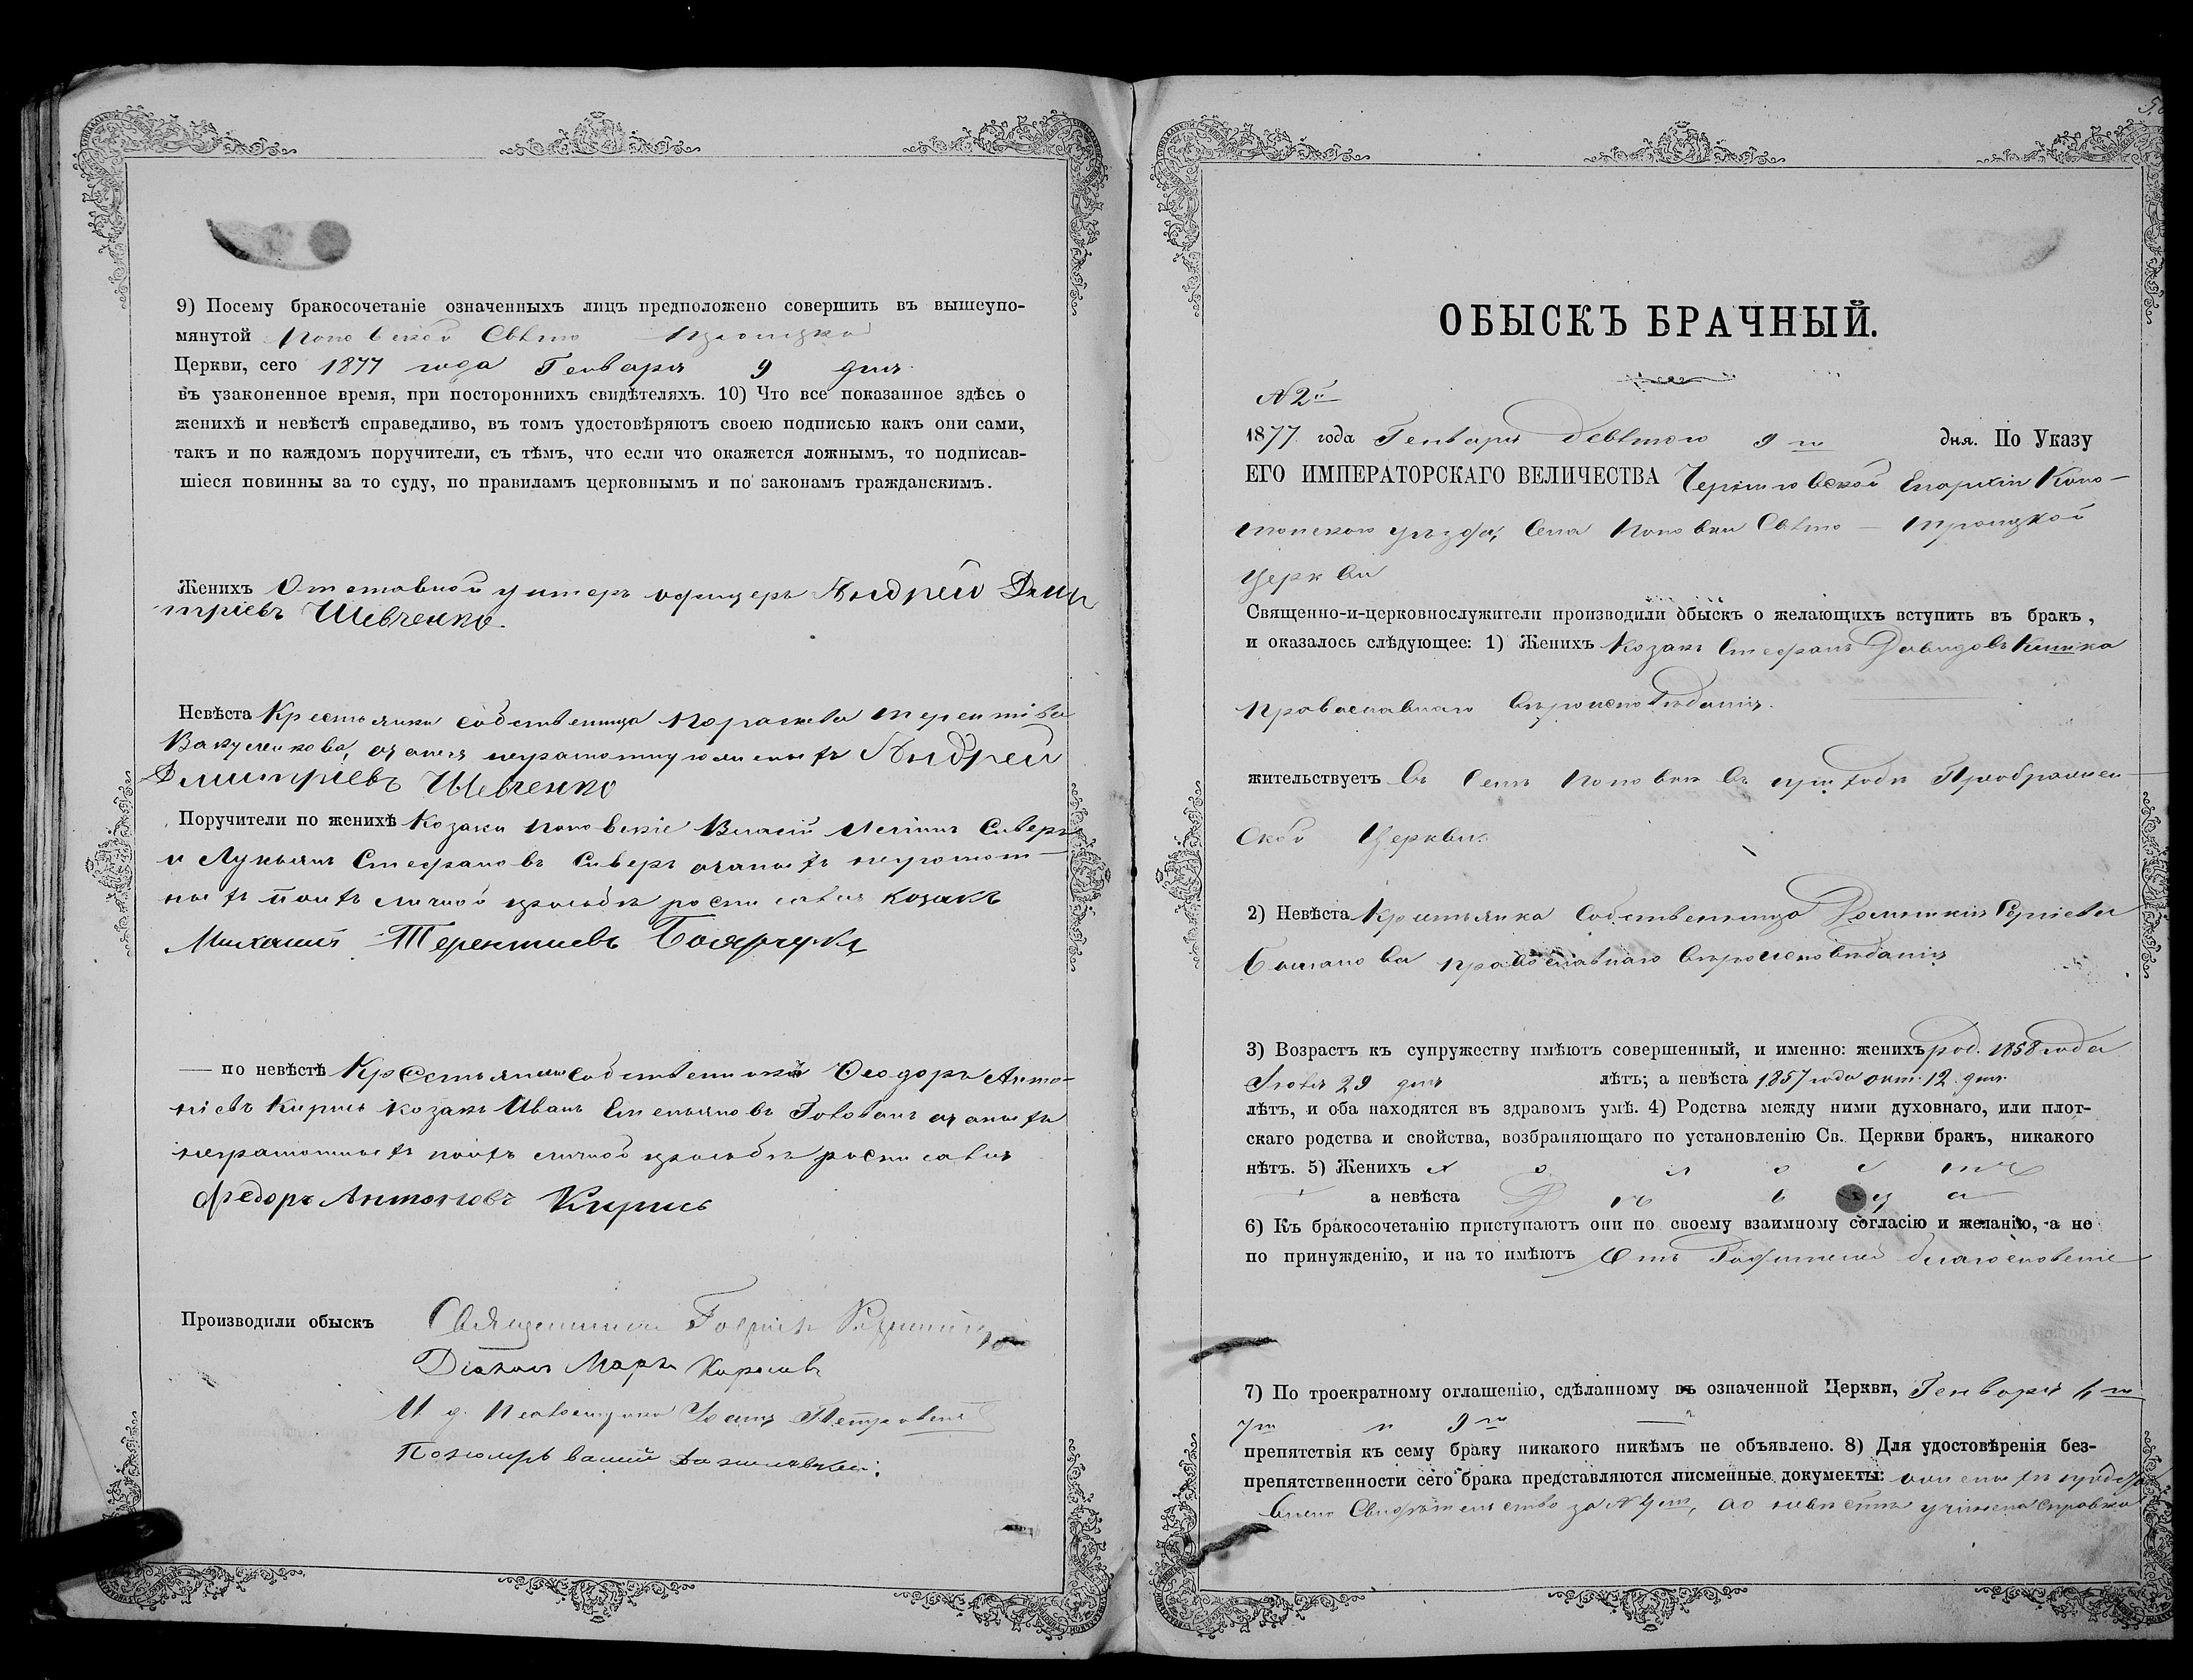 9) Посему бракосочетаніе означенныхъ лицъ предположено совершить въ вышеупо-
мянутой Поповской Свѣто Троицкой
Церкви, сего 1877 года Генваря 9 дня
въ узаконенное время, при постороннихъ свидѣтеляхъ. 10) Что все показанное здѣсь о
женихѣ и невѣстѣ справедливо, въ томъ удостовѣряютъ своею подписью какъ они сами,
такъ и по каждомъ поручители, съ тѣмъ, что если что окажется ложнымъ, то подписав-
шіеся повинны за то суду, по правиламъ церковнымъ и по законамъ гражданскимъ.
Женихъ Отставной унтеръ офицеръ Андрей Дми
тріевъ Шевченко.
Невѣста Крестьянка собственница Параскева Терентіева
Вакуленкова, а за нея неграмотную Андрей
Дмитріевъ Шевченко
Поручители по женихѣ Козаки Поповскіе Власій Сиверъ
и Лукьянъ Стефановъ Сиверъ а за нихъ неграмот
ныхъ по ихъ личной прозьбѣ росписался козакъ
Михаилъ Терентиевъ Боярчукъ
— по невѣстѣ Крестьянинъ собственникъ Ѳеодоръ Анто-
ніевъ Кирись козакъ Иванъ Емельяновъ Голованъ а за нихъ
неграмотныхъ по ихъ личной прозьбѣ росписался
Федоръ Антоновъ Кирись
Производили обыскъ Священникъ
Діаконъ Маръ
И. д. Псаломщика Іоанъ Петровскій
Пономарь
ОБЫСКЪ БРАЧНЫЙ.
№ 2й
1877 года Генваря девятого 9го дня. По Указу
ЕГО ИМПЕРАТОРСКАГО ВЕЛИЧЕСТВА Черниговской Епархіи Коно-
топского уѣзда, Села Поповки Свѣто — Троицкой
Церкви
Священно-и-церковнослужители производили обыскъ о желающихъ вступить въ бракъ,
и оказалось слѣдующее: 1) Женихъ Козакъ Стефанъ Давидовъ Кишка
Православнаго вѣроисповѣданія.
жительствуетъ въ селѣ Поповки въ приходѣ Преображен—
ской Церкви.
2) Невѣста Крестьянка собственница Домникія Сергіева
православнаго вѣроисповѣданія
3) Возрастъ къ супружеству имѣютъ совершенный, и именно: женихъ род. 1858 года
29 дня лѣтъ; а невѣста 1857 года окт. 12. дня.
лѣтъ, и оба находятся въ здравомъ умѣ. 4) Родства между ними духовнаго, или плот-
скаго родства и свойства, возбраняющаго по установленію Св. Церкви бракъ, никакого
нѣтъ. 5) Женихъ х о л о с тъ
а невѣста Д ѣ в и ц а
6) Къ бракосочетанію приступаютъ они по своему взаимному согласію и желанію, а не
по принужденію, и на то имѣютъ Отъ Родителей благословеніе
7) По троекратному оглашенію, сдѣланному въ означенной Церкви, Генваря
7го и 9го
препятствія къ сему браку никакого никѣмъ не объявлено. 8) Для удостовѣренія без-
препятственности сего брака представляются письменные документы: о женихѣ предста
влено Свидѣтельство за №, а о невѣстѣ учинена справка